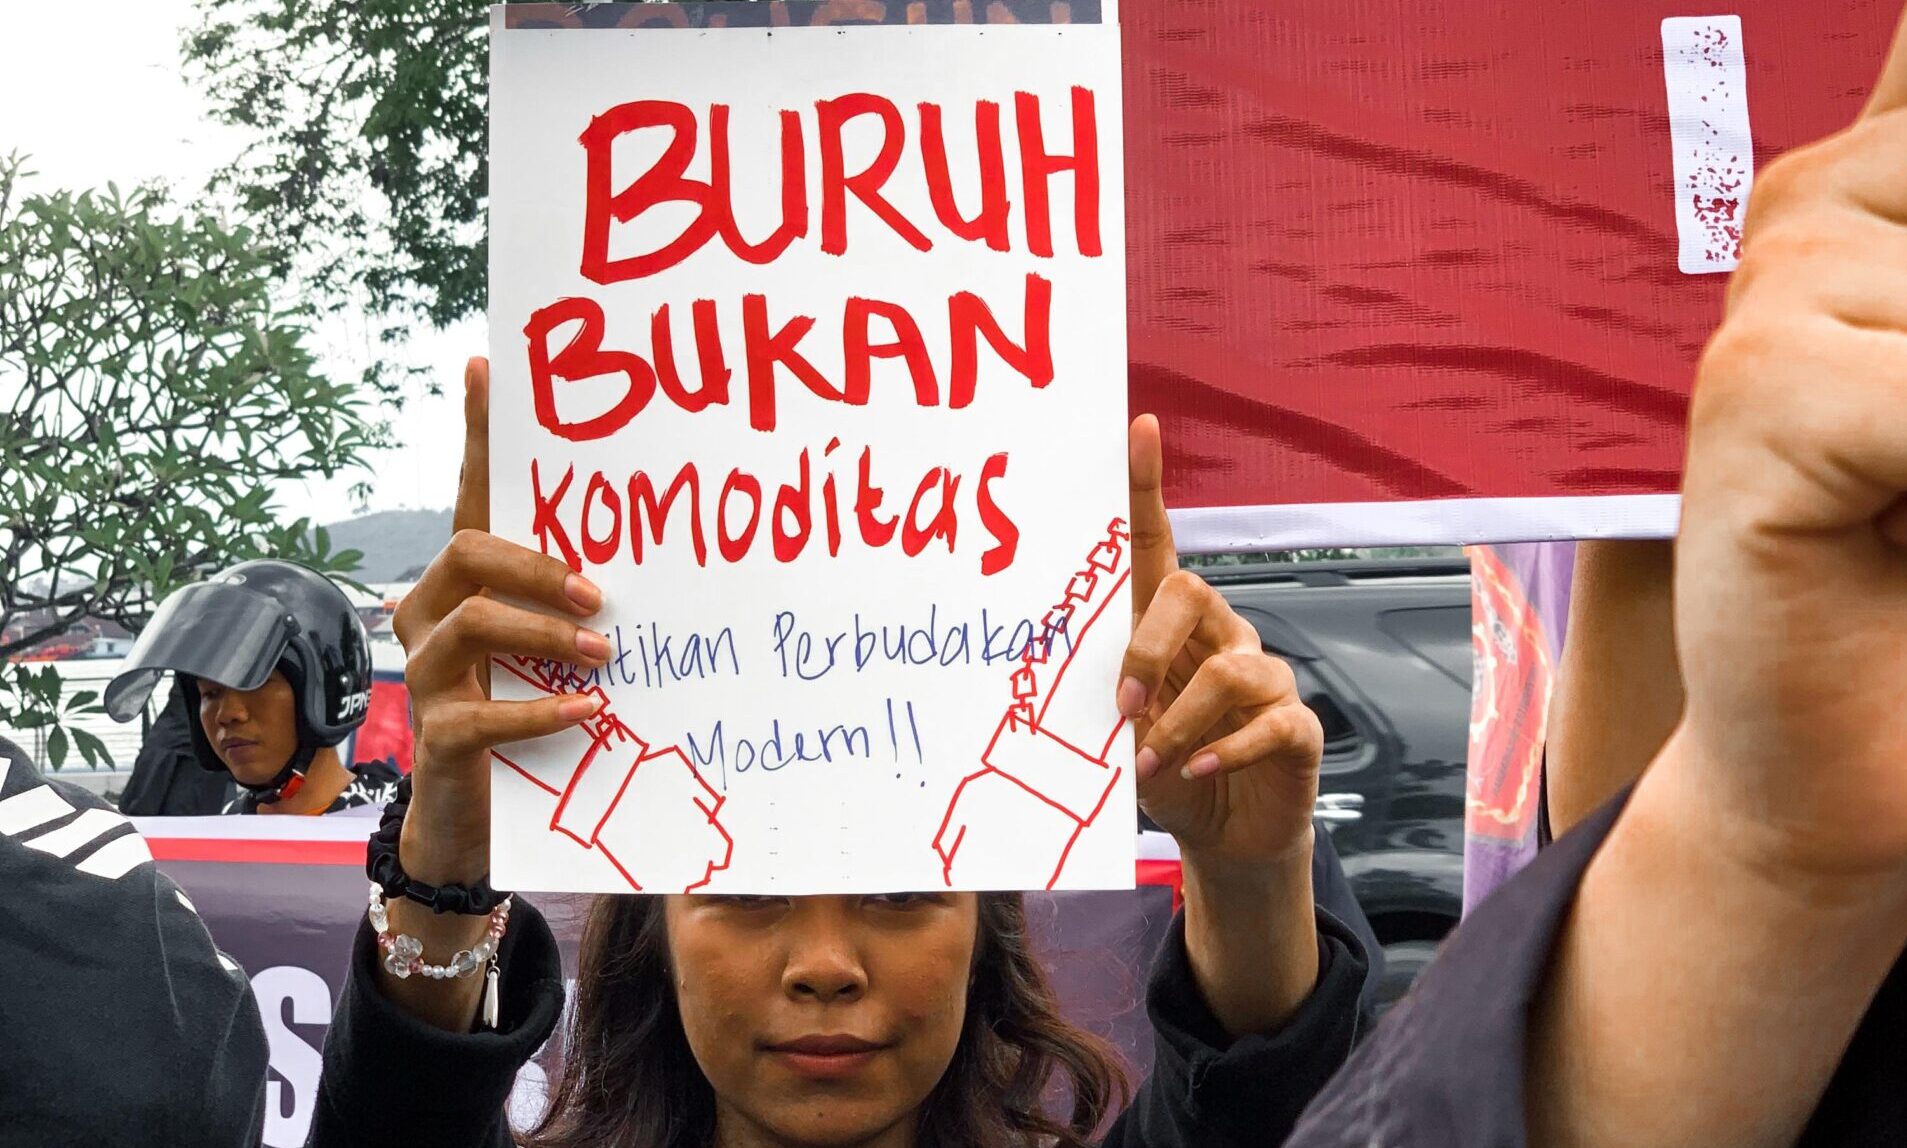 BURUH
BUKAN
Komoditas
Perbudakan
Modern!!
S